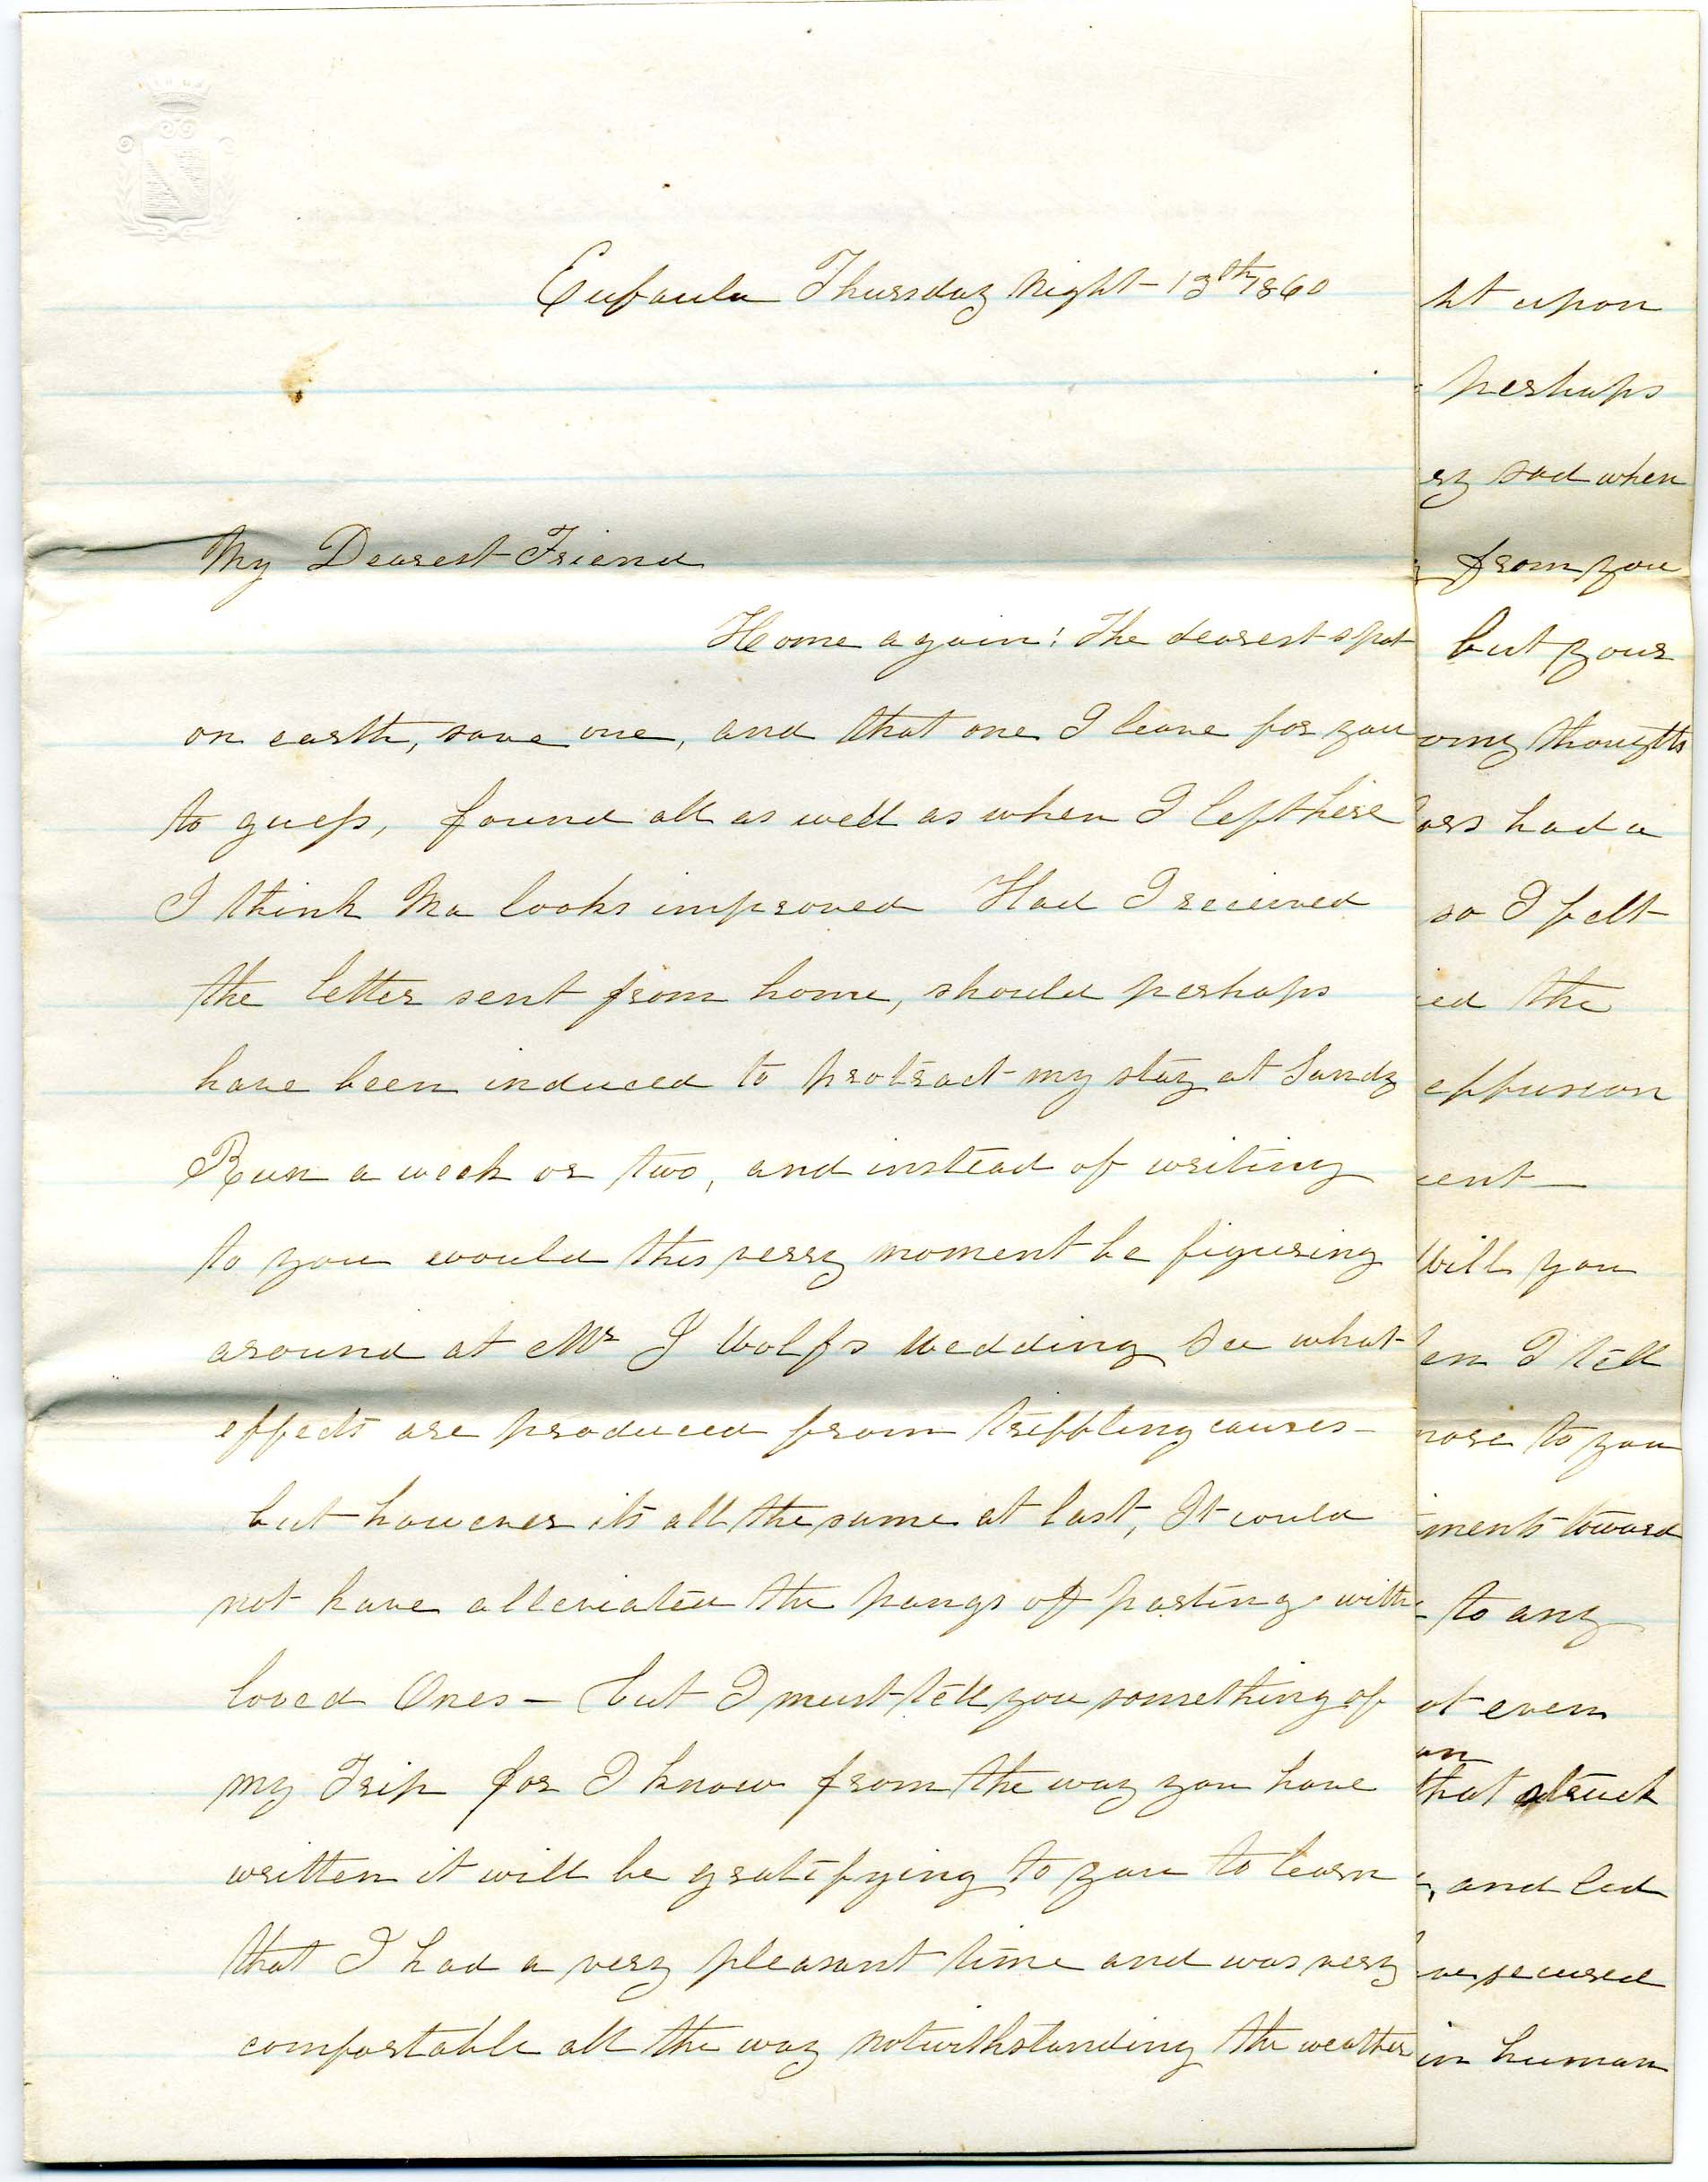 Eufaula Thursday Night - 13th 1860
My Dearest Friend
Home again! The dearest spot
on earth, save one, and that one I leave for you
to guess, found all as well as when I left here
I think Ma looks improved Had I recieved
the letter sent from home, should perhaps
have been induced to protract my stay at Sandy
Run a week or two, and instead of writing
to you would this verry moment be figuring
around at Mr J Wolfs Wedding See what
effects are produced from triffling causes -
but however its all the same at last, It could
not have alleviated the pangs of parting with
loved Ones - but I must tell you something of
my Trip for I know from the way you have
written it will be gratifying to you to learn
that I had a very pleasant time and was very
comfortable all the way notwithstanding the weather
ht upon
perhaps
ry sad when
from you
but your
oming thoughts
ars had a
so I felt
ied the
effusion
cent
Will you
en I tell
more to you
iments toward
to any
ot even
an
that struck
, and led
ve secured
in human